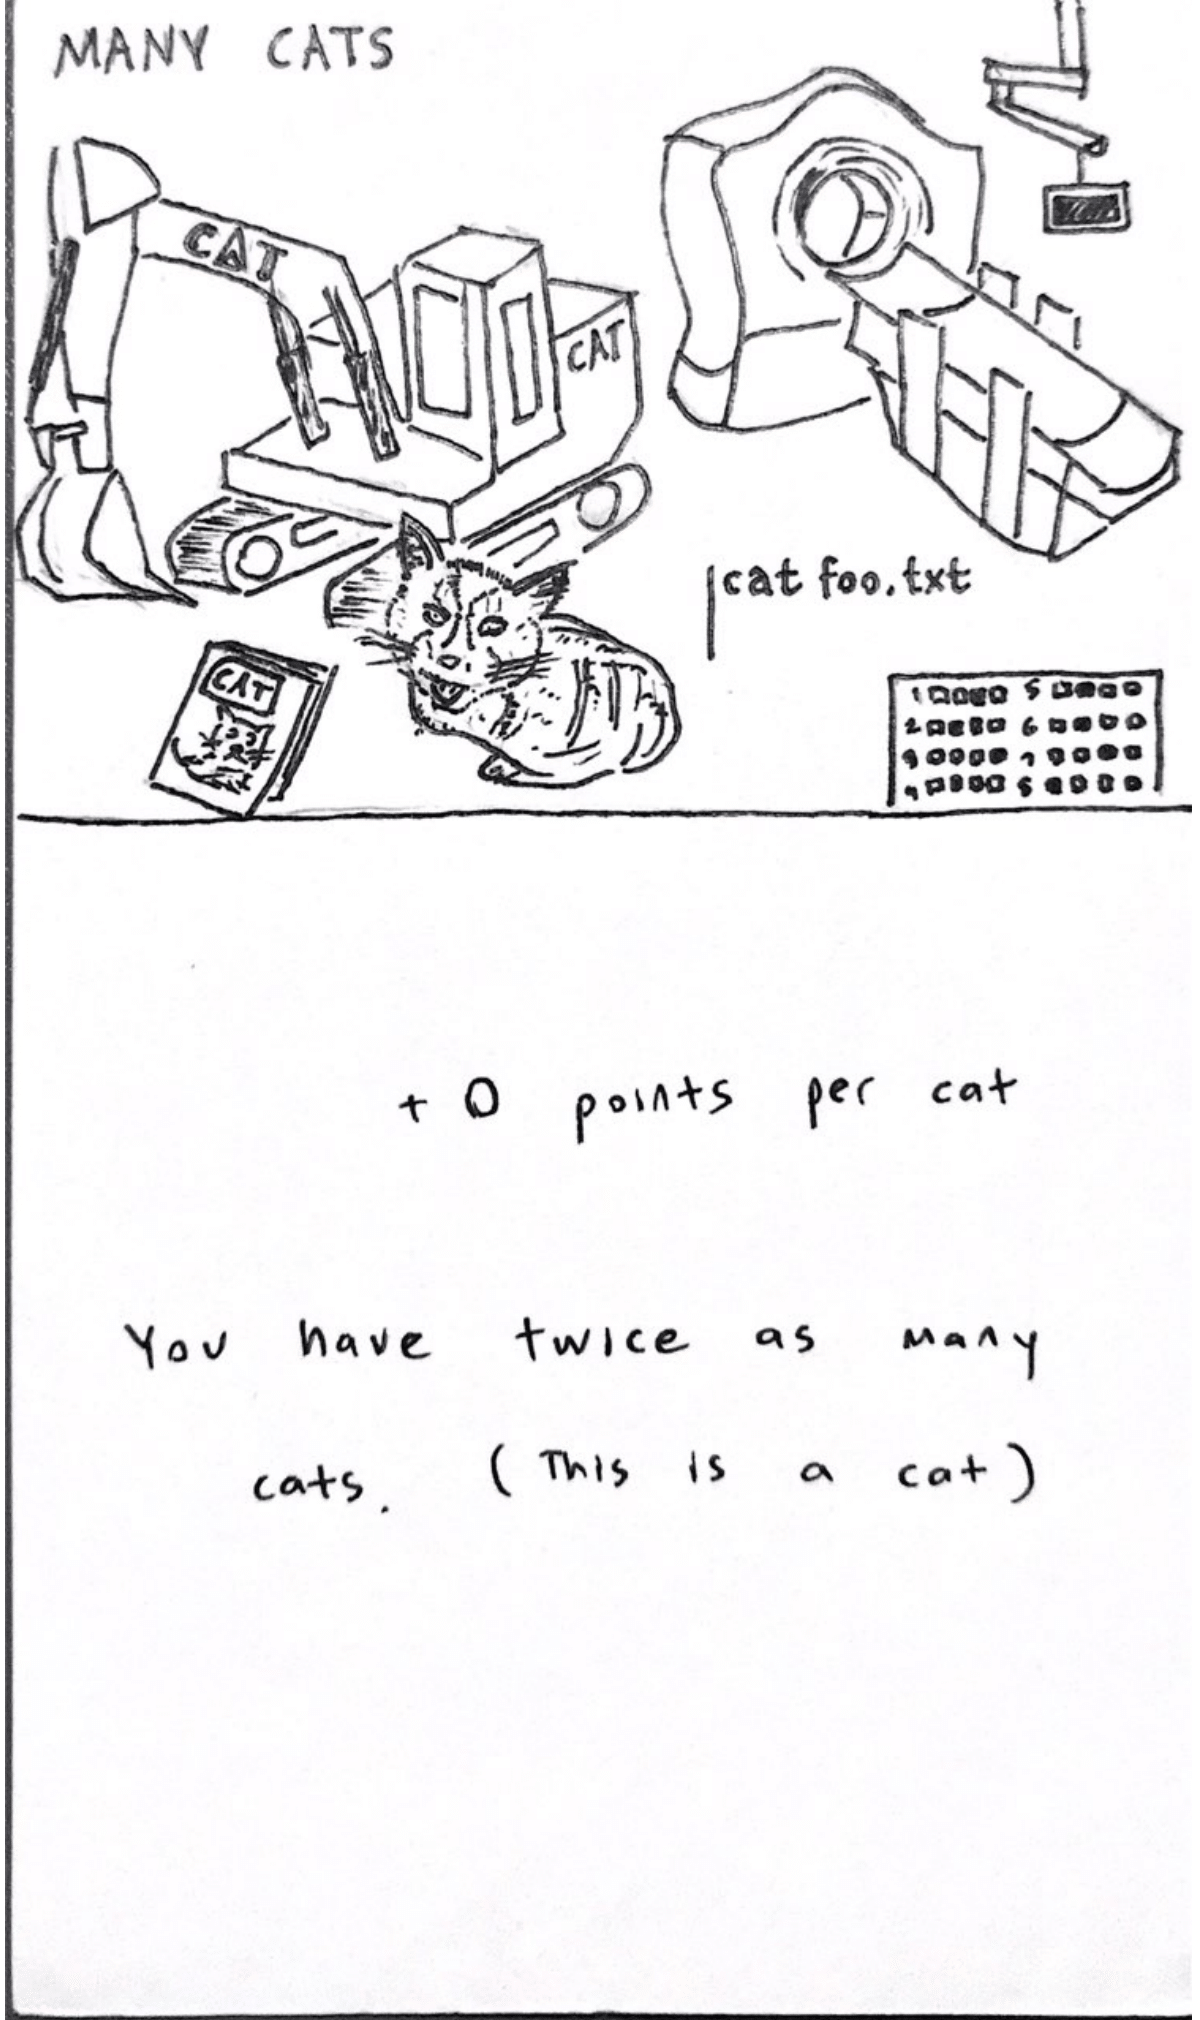 MANY CATS
CAT
CAT
cat foo.txt
CAT
1 5
2 6
+0 points per cat
You have twice as many
cats. (This is a cat)